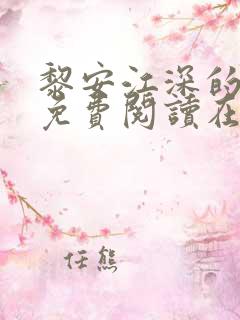 黎安江深的
免費閱讀在
任熊